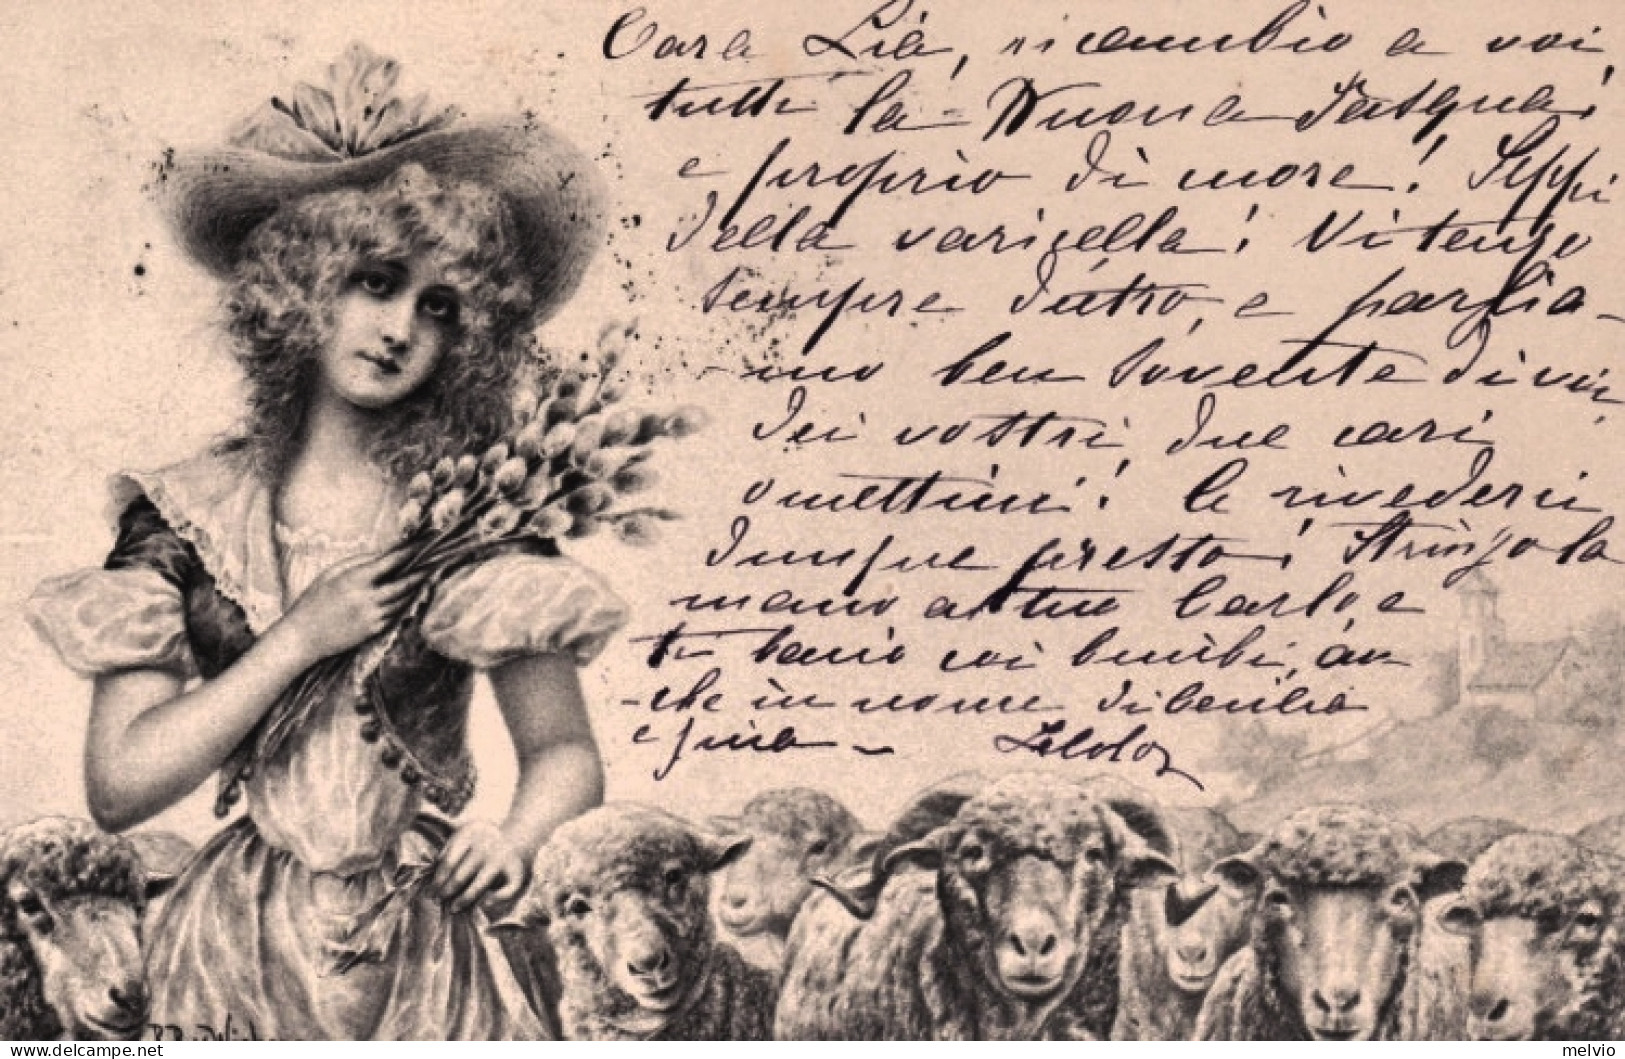 Cara Lia, ricambio a voi
tutti la Buona Pasqua,
e proprio di more! Seppi
della varicella! Vi tengo
sempre dietro, e parlia-
mo ben sovente di voi,
dei vostri due cari
omettini! A rivederci
dunque presto! Stringo la
mano al tuo Carlo, e
ti bacio coi bimbi, an-
che in nome di Cecilia
e Gina -
delcampe.net
melvio